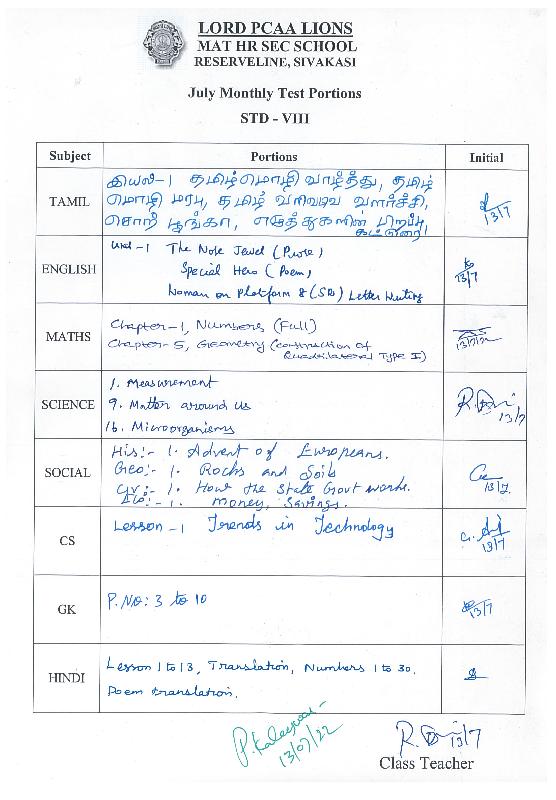 LORD PCAA LIONS
MAT HR SEC SCHOOL
RESERVELINE, SIVAKASI
July Monthly Test Portions
STD - VIII
Subject Portions Initial
TAMIL
இயல்-1 தமிழ்மொழி வாழ்த்து, தமிழ்
மொழி மரபு, தமிழ் வரிவடிவ வளர்ச்சி,
சொற் பூங்கா, எழுத்துகளின் பிறப்பு,
கட்டுரை.
13/7
ENGLISH
Unit-1 The Nose Jewel (Prose)
Special Hero (Poem)
Woman on Platform 8 (SR) Letter Writing
13/7
MATHS
Chapter-1, Numbers (Full)
Chapter-5, Geometry (construction of
Quadrilateral Type I)
13/7/22
SCIENCE
1. Measurement
9. Matter around us
16. Microorganisms
13/7
SOCIAL
His:- 1. Advent of Europeans.
Geo:- 1. Rocks and Soils
Civ:- 1. How the State Govt works.
Eco:- 1. Money, Savings.
13/7
CS
Lesson-1 Trends in Technology
13/7
GK
P.No: 3 to 10
13/7
HINDI
Lesson 1 to 13, Translation, Numbers 1 to 30.
Poem translation.
13/07/22
13/7
Class Teacher